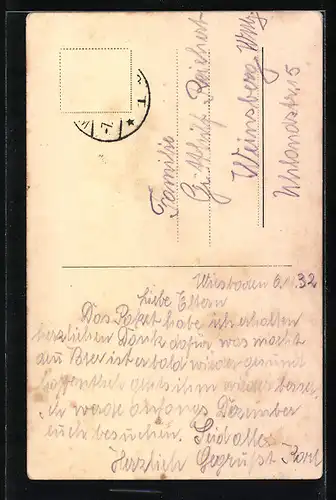 Familie
Gotthilf Reichert
Weinsberg Wttbg.
Uhlandstr. 15
Wiesbaden 32
Liebe Eltern
Das Paket habe ich erhalten
herzlichen Dank dafür was macht
denn ist er bald wieder gesund
hoffentlich geht's ihm wieder besser
Ich werde anfangs Dezember
euch besuchen. Seid alle
Herzlich Gegrüßt Karl